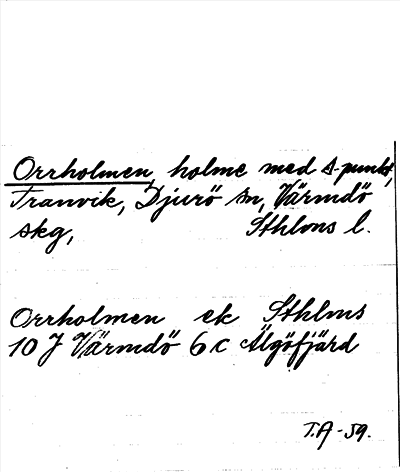 Orrholmen, holme med s-punkt,
Tranvik, Djurö sn, Värmdö
skg, Sthlms l.
Orrholmen ek Sthlms
10 J Värmdö 6 c Älgöfjärd
T.A-59.